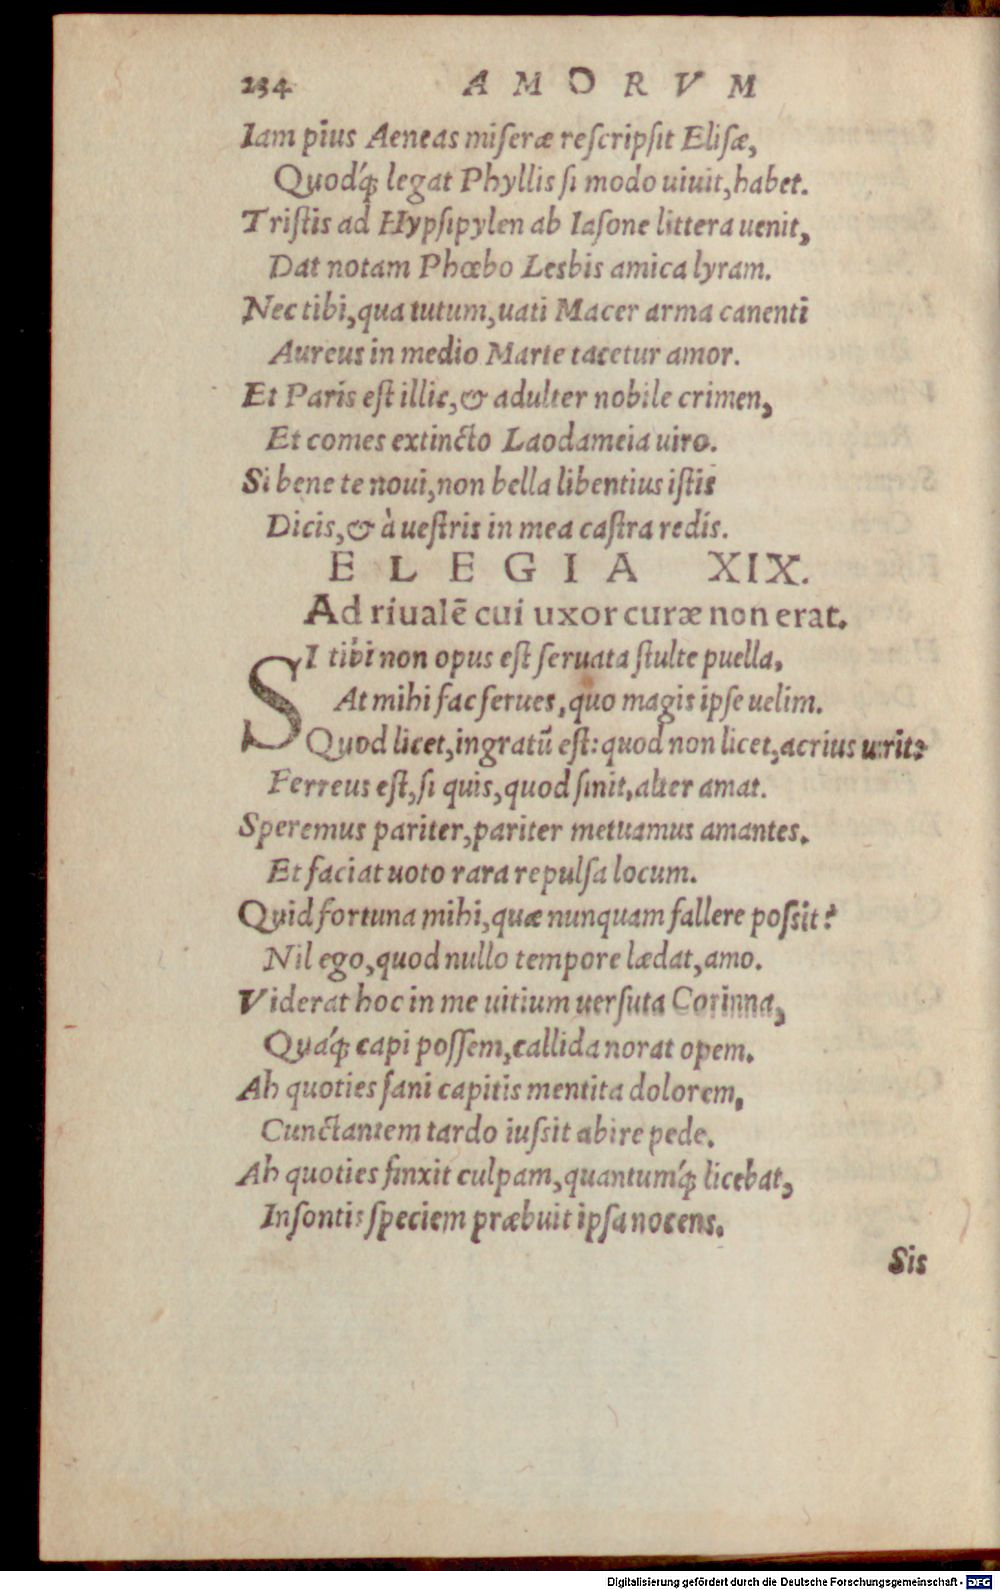 234 AMORVM
Iam pius Aeneas miseræ rescripsit Elisæ,
Quod́q; legat Phyllis si modo uiuit, habet.
Tristis ad Hypsipylen ab Iasone littera uenit,
Dat notam Phœbo Lesbis amica lyram.
Nec tibi, qua tutum, uati Macer arma canenti
Aureus in medio Marte tacetur amor.
Et Paris est illic, & adulter nobile crimen,
Et comes extincto Laodameia uiro.
Si bene te noui, non bella libentius istis
Dicis, & à uestris in mea castra redis.
ELEGIA XIX.
Ad riualē cui uxor curæ non erat.
SI tibi non opus est seruata stulte puella,
At mihi fac serues, quo magis ipse uelim.
Quod licet, ingratū est: quod non licet, acrius urit:
Ferreus est, si quis, quod sinit, alter amat.
Speremus pariter, pariter metuamus amantes.
Et faciat uoto rara repulsa locum.
Quid fortuna mihi, quæ nunquam fallere possit?
Nil ego, quod nullo tempore lædat, amo.
Viderat hoc in me uitium uersuta Corinna,
Quáq; capi possem, callida norat opem.
Ah quoties sani capitis mentita dolorem,
Cunctantem tardo iussit abire pede.
Ah quoties finxit culpam, quantumq́; licebat,
Insontis speciem præbuit ipsa nocens.
Sis
Digitalisierung gefördert durch die Deutsche Forschungsgemeinschaft - DFG